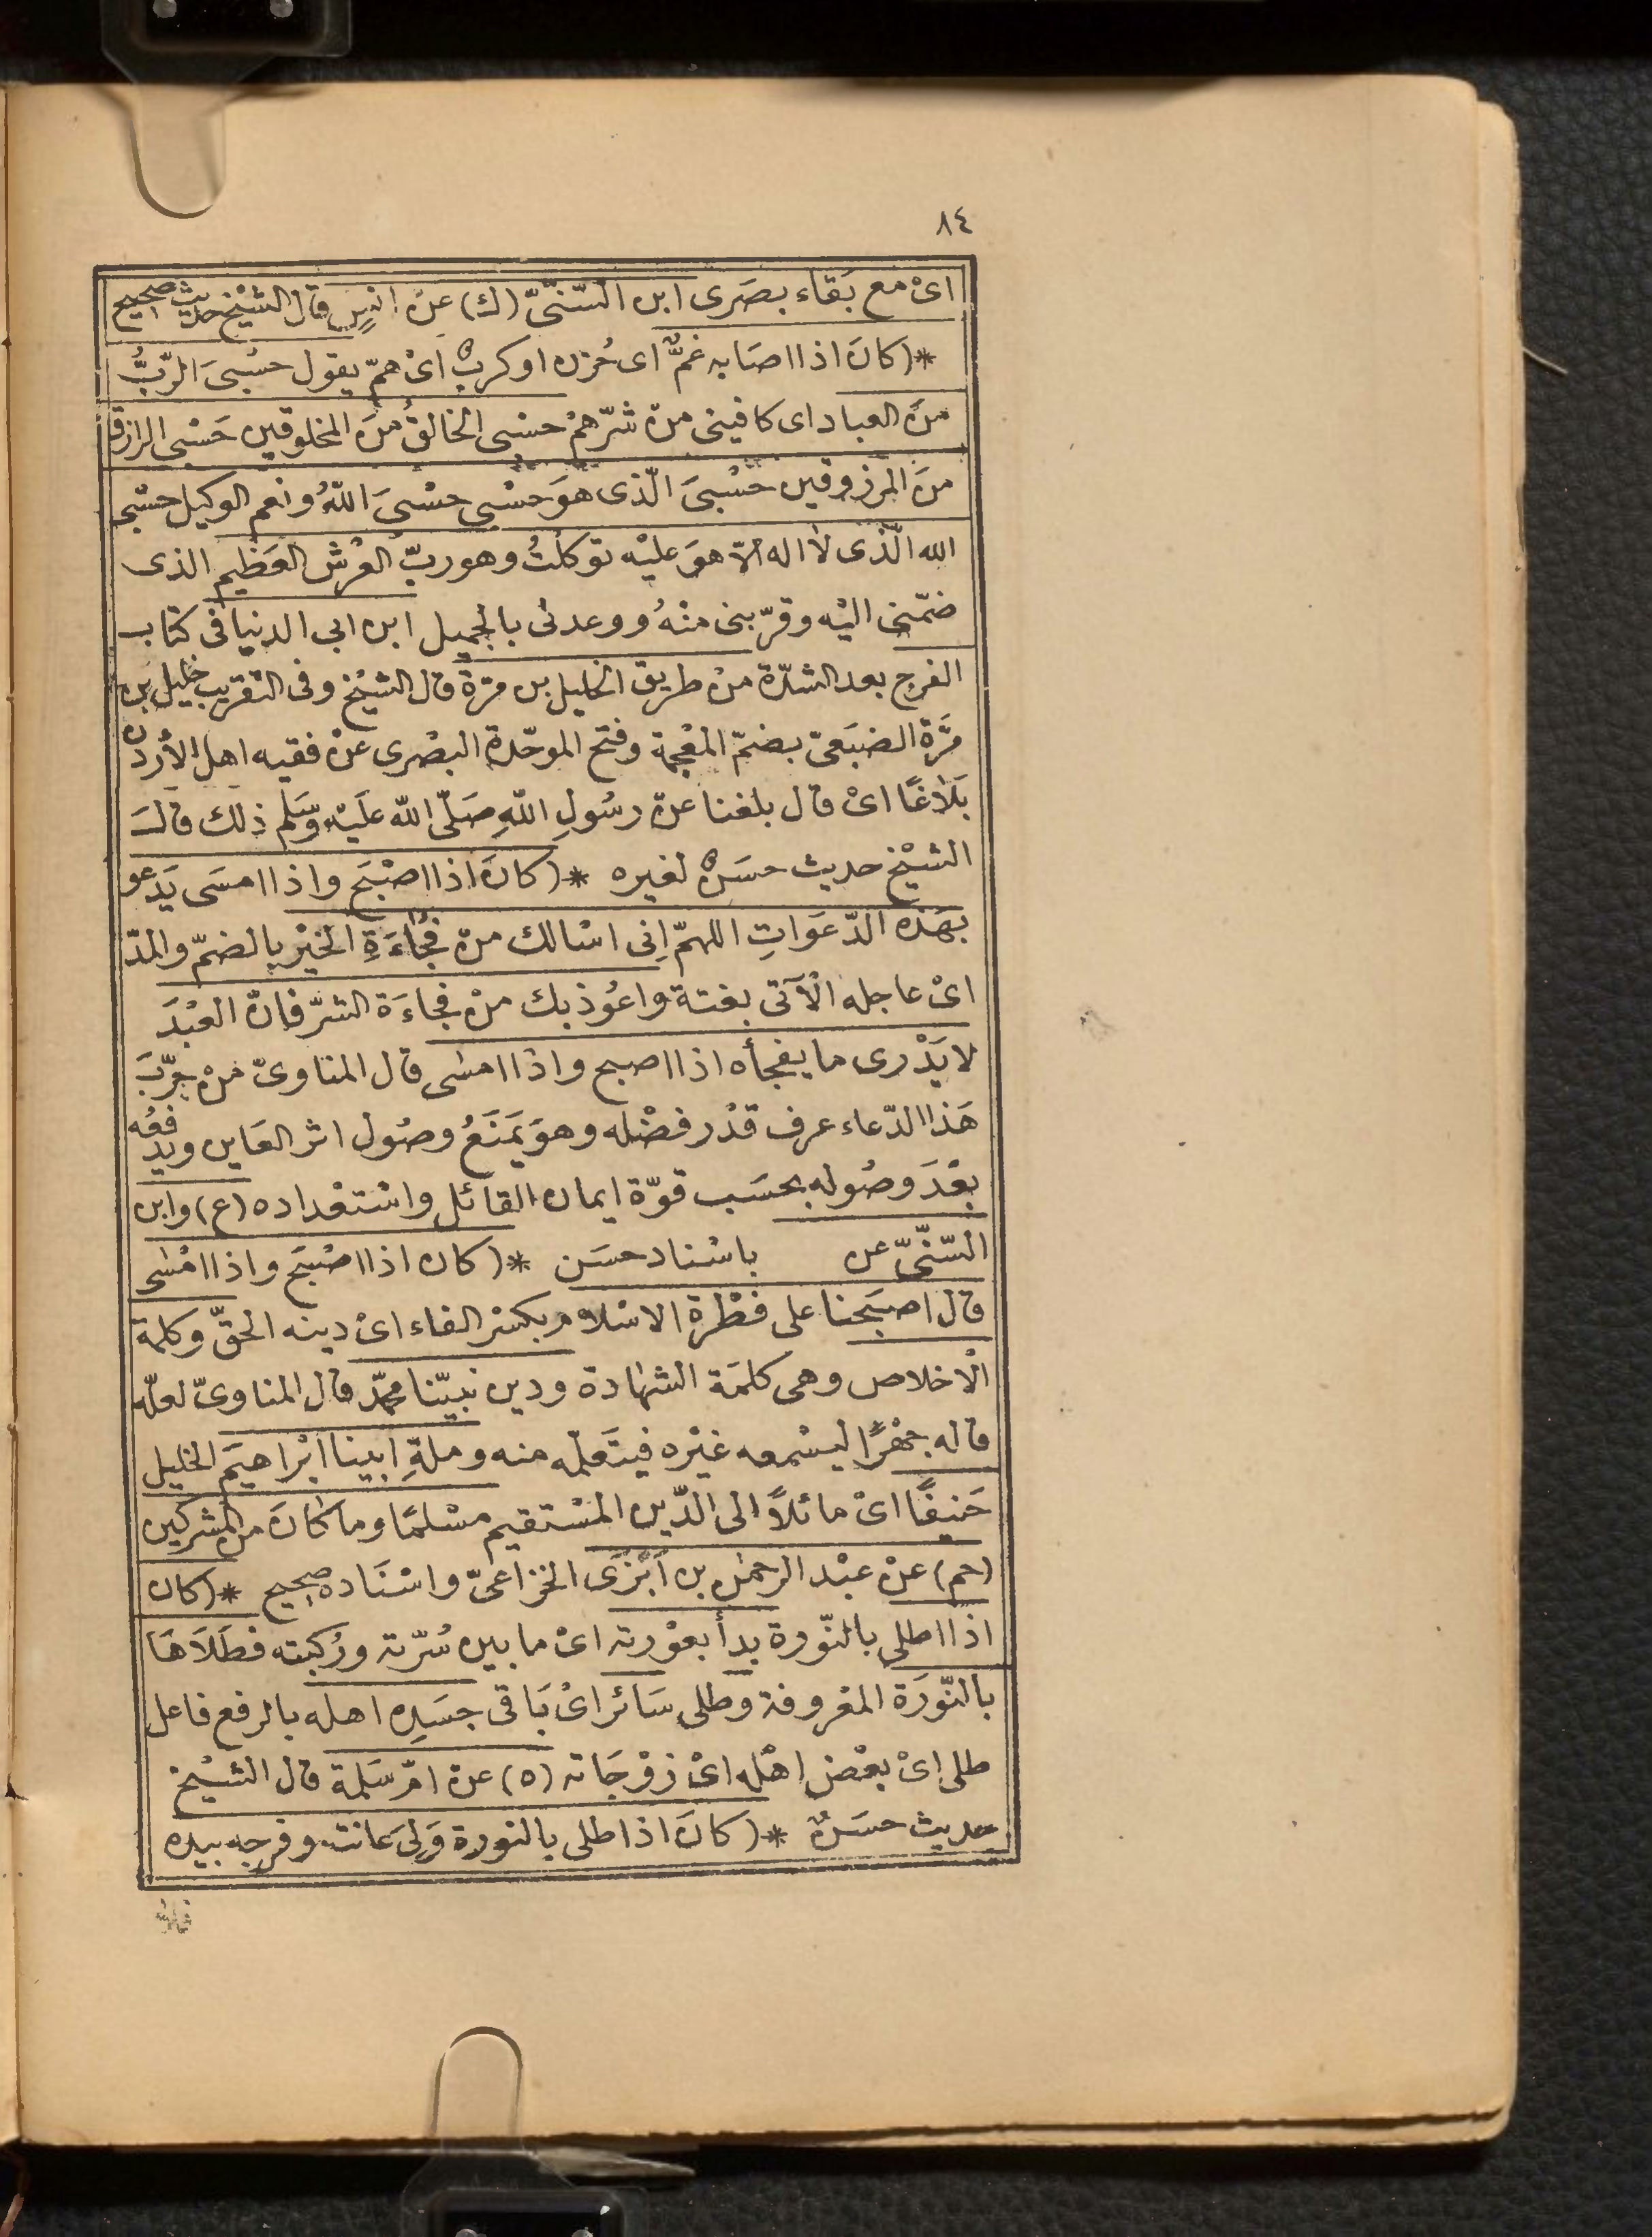 ٨٤
اىْ مع بَقاء بصَرى ابن السّنّىّ (ك) عنْ انسٍ قال الشيْخ حديث صحيح
*( كانَ اذا اصَابه غمٌّ اى حُزن او كربٌ اىْ همّ يقول حسْبىَ الرّبُّ
منَ العباد اى كافينى منْ شرّهمْ حسْبى الخالقُ منَ المخلوقين حَسْبى الرازق
منَ المرْزوقين حَسْبىَ الّذى هوَ حسْبى حسْبىَ اللهُ ونعم الوكيل حسْبى
الله الّذى لا اله الّا هوَ عليْه توكلْتُ وهو ربّ العرْش العَظيم الذى
ضمّنى اليْه وقرّبنى منْهُ ووعدنى بالجميل ابن ابى الدنيا فى كتاب
الفرج بعد الشدّة منْ طريق الخليل بن مرّة قال الشيْخ وفى التقريب خليل بن
مرَّة الضبَعىّ بضمّ المعْجمة وفتح الموحّدة البصْرى عنْ فقيه اهل الأردن
بَلَاغًا اىْ قال بلغنا عنْ رسُولِ اللهِ صَلّى الله علَيْه وَسَلم ذلك قالَ
الشيْخ حديث حسَنٌ لغيره *( كانَ اذا اصْبَح واذا امسَى يَدعو
بهَذه الدّعَواتِ اللهمّ اِنى اسْالك منْ فُجْاءَةِ الخيْر بالضمّ والمدّ
اىْ عاجله الْآتى بغتة واعُوذ بك منْ فجاءَة الشرّ فانّ العبْدَ
لا يَدْرى ما يفجأه اذا اصبح واذا امسٰى قال المناوىّ منْ جرّبَ
هَذا الدّعاء عرف قدْر فضْله وهوَ يَمنَعُ وصُول اثر العَاين ويدفعُه
بعْدَ وصُوله بحسَب قوّة ايمان القائل واسْتعْداده (ع) وابن
السّنّىّ عن باسْناد حسَن *( كان اذا اصْبَح واذا امْسٰى
قال اصبَحنا على فطْرة الاسْلام بكسْر الفاء اىْ دينه الحقّ وكلمة
الْاخلاص وهى كلمَة الشهادة ودين نبيّنا محمّد قال المناوىّ لعلّه
قاله جهْرًا ليسْمعه غيْره فيتعَلّمه منه وملةِ ابينا ابْراهيَم الخليل
حَنيفًا اىْ مائلًا الى الدّين المسْتقيم مسْلمًا وما كانَ من المشركين
(حم) عنْ عبْد الرحمٰن بن اَبْزَى الخزاعىّ واسْنَاده صحيح *( كان
اذا اطلى بالنّورة بدأ بعوْرته اىْ ما بين سُرّته ورُكبته فطَلَاهَا
بالنّورَة المعْروفة وطلى سَائر اىْ بَاقى جسَدِه اهله بالرفع فاعل
طلى اىْ بعْض اهْله اىْ زوْجَاته (ه) عنْ امّ سَلمة قال الشيْخ
حديث حسَنٌ *( كانَ اذا طلى بالنورة وَلىَ عانته وفرجه بيده